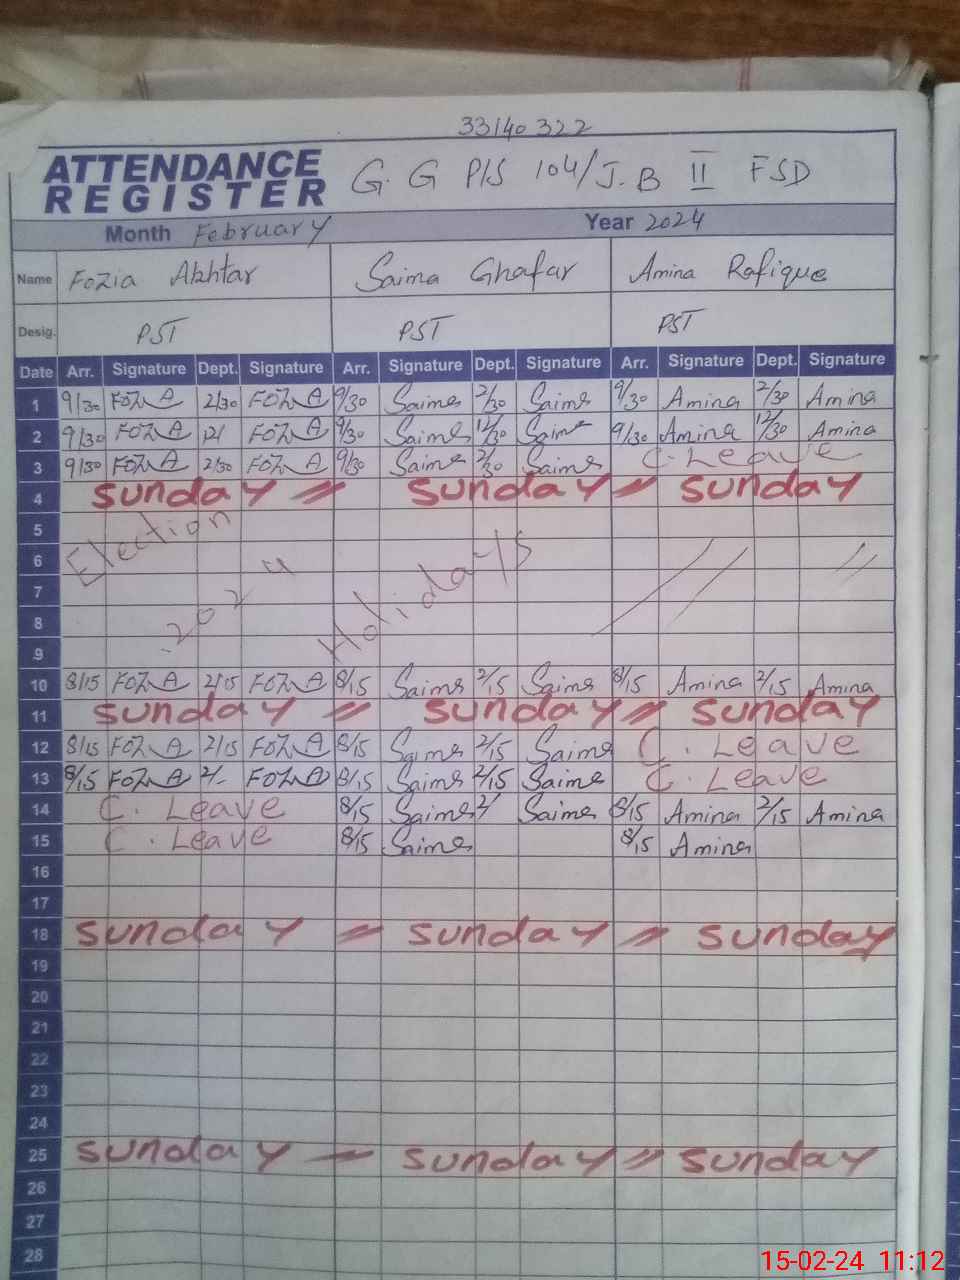 33140322
ATTENDANCE REGISTER G. G P/S 104/J.B II FSD
Month February Year 2024
Name Fozia Akhtar Saima Ghafar Amina Rafique
Desig. PST PST PST
Date Arr. Signature Dept. Signature Arr. Signature Dept. Signature Arr. Signature Dept. Signature
1 9/30 FOZIA 2/30 FOZIA 9/30 Saima 2/30 Saima 9/30 Amina 2/30 Amina
2 9/30 FOZIA 12/ FOZIA 9/30 Saima 12/30 Saima 9/30 Amina 12/30 Amina
3 9/30 FOZIA 2/30 FOZIA 9/30 Saima 2/30 Saima C. Leave
4 Sunday = Sunday = Sunday
5 Election
6
7 2024 Holidays
8
9
10 8/15 FOZIA 2/15 FOZIA 8/15 Saima 2/15 Saima 8/15 Amina 2/15 Amina
11 Sunday = Sunday = Sunday
12 8/15 FOZIA 2/15 FOZIA 8/15 Saima 2/15 Saima C. Leave
13 8/15 FOZIA 2/- FOZIA 8/15 Saima 2/15 Saima C. Leave
14 C. Leave 8/15 Saima 2/ Saima 8/15 Amina 2/15 Amina
15 C. Leave 8/15 Saima 8/15 Amina
16
17
18 Sunday = Sunday = Sunday
19
20
21
22
23
24
25 Sunday = Sunday = Sunday
26
27
28
15-02-24 11:12